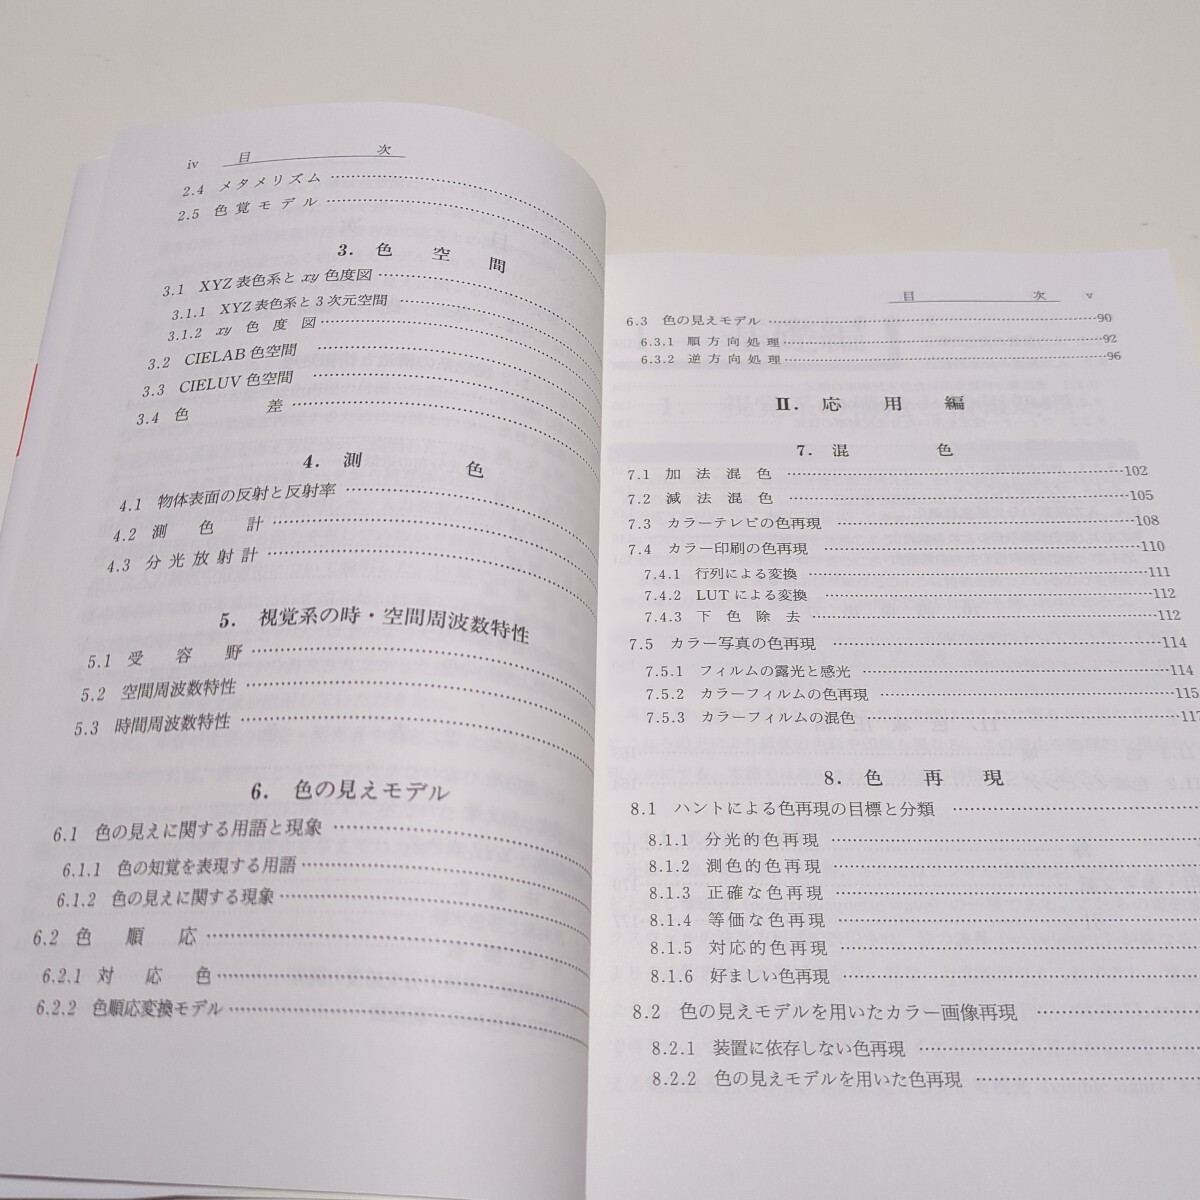 iv 目次
2.4 メタメリズム
2.5 色覚モデル
3. 色空間
3.1 XYZ表色系とxy色度図
3.1.1 XYZ表色系と3次元空間
3.1.2 xy色度図
3.2 CIELAB色空間
3.3 CIELUV色空間
3.4 色差
4. 測色
4.1 物体表面の反射と反射率
4.2 測色計
4.3 分光放射計
5. 視覚系の時・空間周波数特性
5.1 受容野
5.2 空間周波数特性
5.3 時間周波数特性
6. 色の見えモデル
6.1 色の見えに関する用語と現象
6.1.1 色の知覚を表現する用語
6.1.2 色の見えに関する現象
6.2 色順応
6.2.1 対応色
6.2.2 色順応変換モデル
目次 v
6.3 色の見えモデル 90
6.3.1 順方向処理 92
6.3.2 逆方向処理 96
II. 応用編
7. 混色
7.1 加法混色 102
7.2 減法混色 105
7.3 カラーテレビの色再現 108
7.4 カラー印刷の色再現 110
7.4.1 行列による変換 111
7.4.2 LUTによる変換 112
7.4.3 下色除去 112
7.5 カラー写真の色再現 114
7.5.1 フィルムの露光と感光 114
7.5.2 カラーフィルムの色再現 115
7.5.3 カラーフィルムの混色 117
8. 色再現
8.1 ハントによる色再現の目標と分類
8.1.1 分光的色再現
8.1.2 測色的色再現
8.1.3 正確な色再現
8.1.4 等価な色再現
8.1.5 対応的色再現
8.1.6 好ましい色再現
8.2 色の見えモデルを用いたカラー画像再現
8.2.1 装置に依存しない色再現
8.2.2 色の見えモデルを用いた色再現